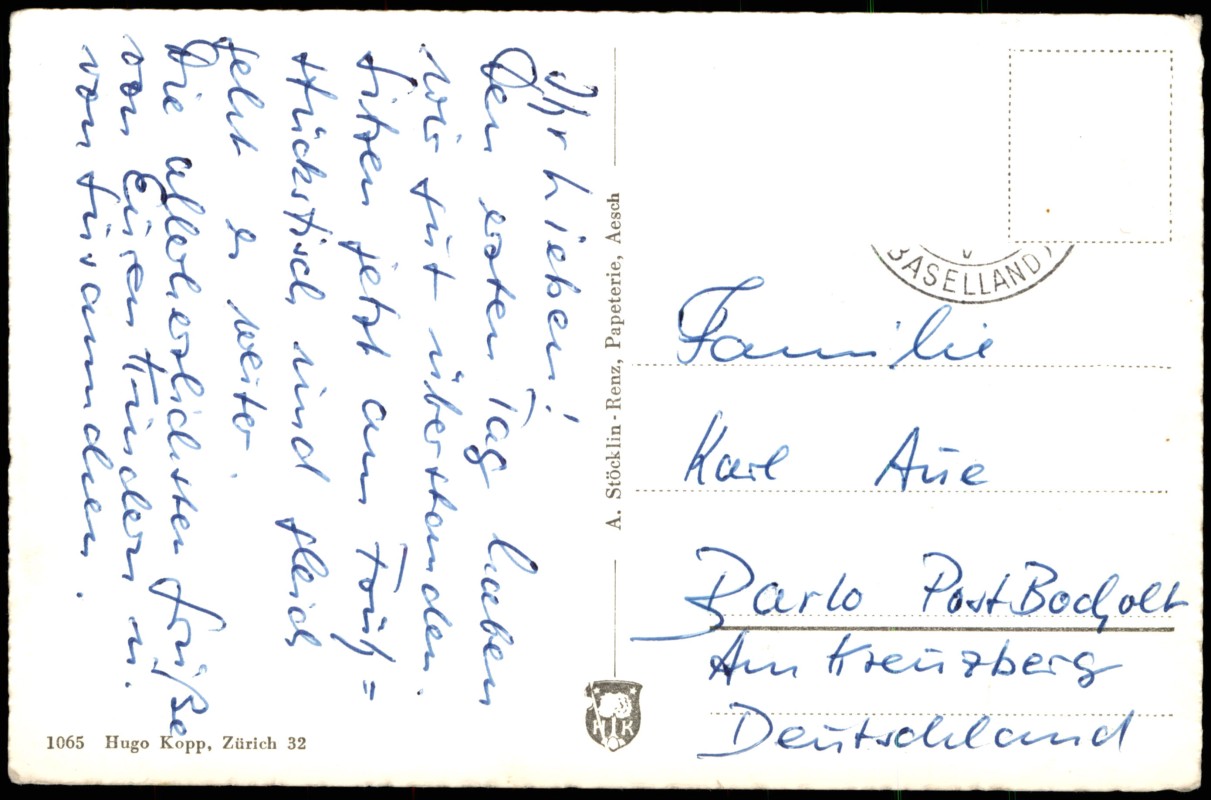 Ihr Lieben!
Den ersten Tag haben
wir gut überstanden.
Sitzen jetzt am Früh=
stückstisch und gleich
geht es weiter.
Die allerherzlichsten Grüße
von Euren Kindern u.
von
A. Stöcklin-Renz, Papeterie, Aesch
HK
1065 Hugo Kopp, Zürich 32
BASELLAND
Familie
Karl Aue
Barlo Post Bocholt
Am Kreuzberg
Deutschland